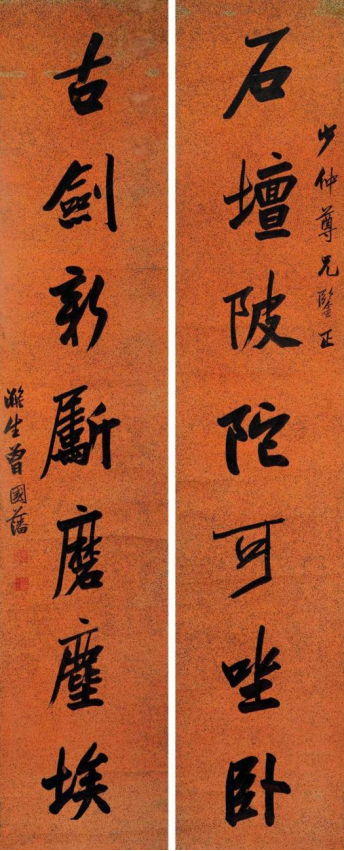 少仲尊兄鑒正
石壇陂陀可坐卧
古劍新斸磨塵埃
滌生曾國藩